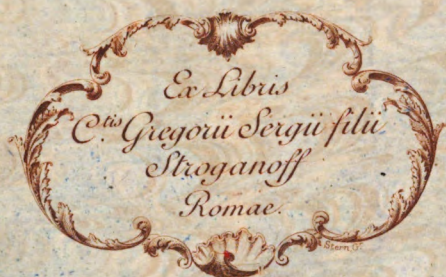 Ex Libris
C.tis Gregorii Sergii filii
Stroganoff
Romae.
Stern Gr.